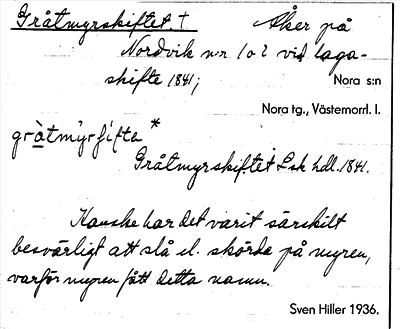 Gråtmyrskiftet. † Åker på
Nordvik n:r 1 o 2 vid laga-
skifte 1841;
Nora s:n
Nora tg., Västernorrl. l.
gràtmyrſifta *
Gråtmyrskiftet Lsk hdl. 1841.
Kanske har det varit särskilt
besvärligt att slå el. skörda på myren,
varför myren fått detta namn.
Sven Hiller 1936.